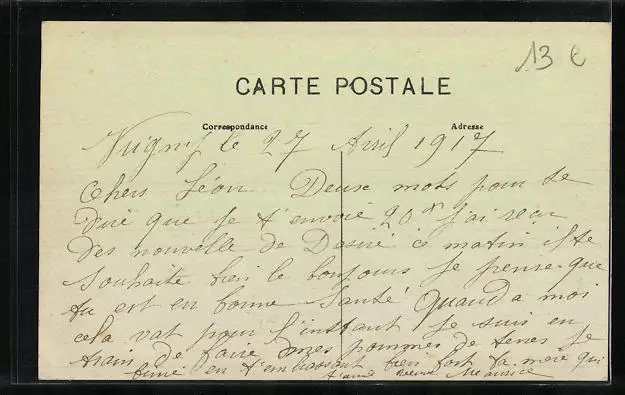 13 €
CARTE POSTALE
Correspondance
Adresse
le 27 Avril 1917
Chers Léon Deux mots pour te
dire que je t'envoie 20 j'ai recu
des nouvelle de Desiré ce matin il te
souhaite bien le bonjours je pense que
tu est en bonne Santé Quand a moi
cela vat pour l'instant je suis en
train de faire mes pommes de terres je
fini en t'embrassant bien fort ta mère qui
t'aime Maurice